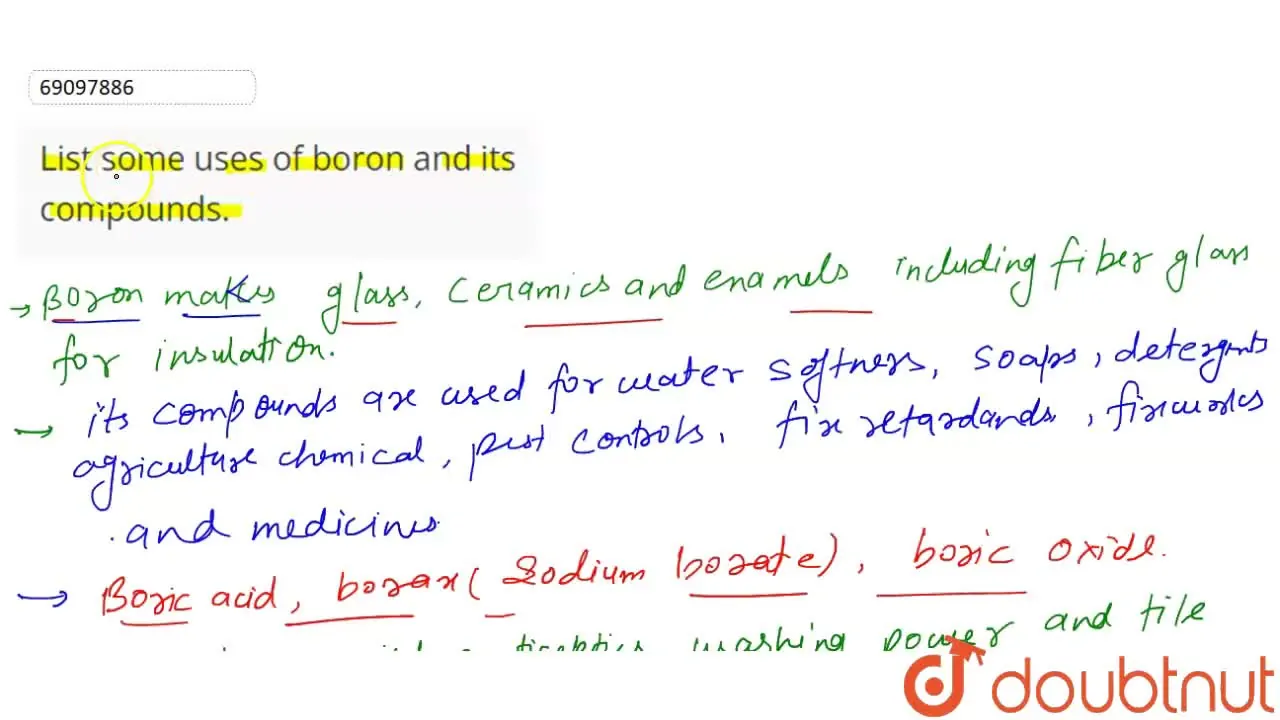 69097886
List some uses of boron and its
compounds.
→ Boron makes glass, ceramics and enamels including fiber glass
for insulation.
→ its compounds are used for water softners, soaps, detergents
agriculture chemical, pest controls, fire retardands, fireworks
and medicines
→ Boric acid, borax (Sodium borate), boric oxide.
washing power and tile
doubtnut